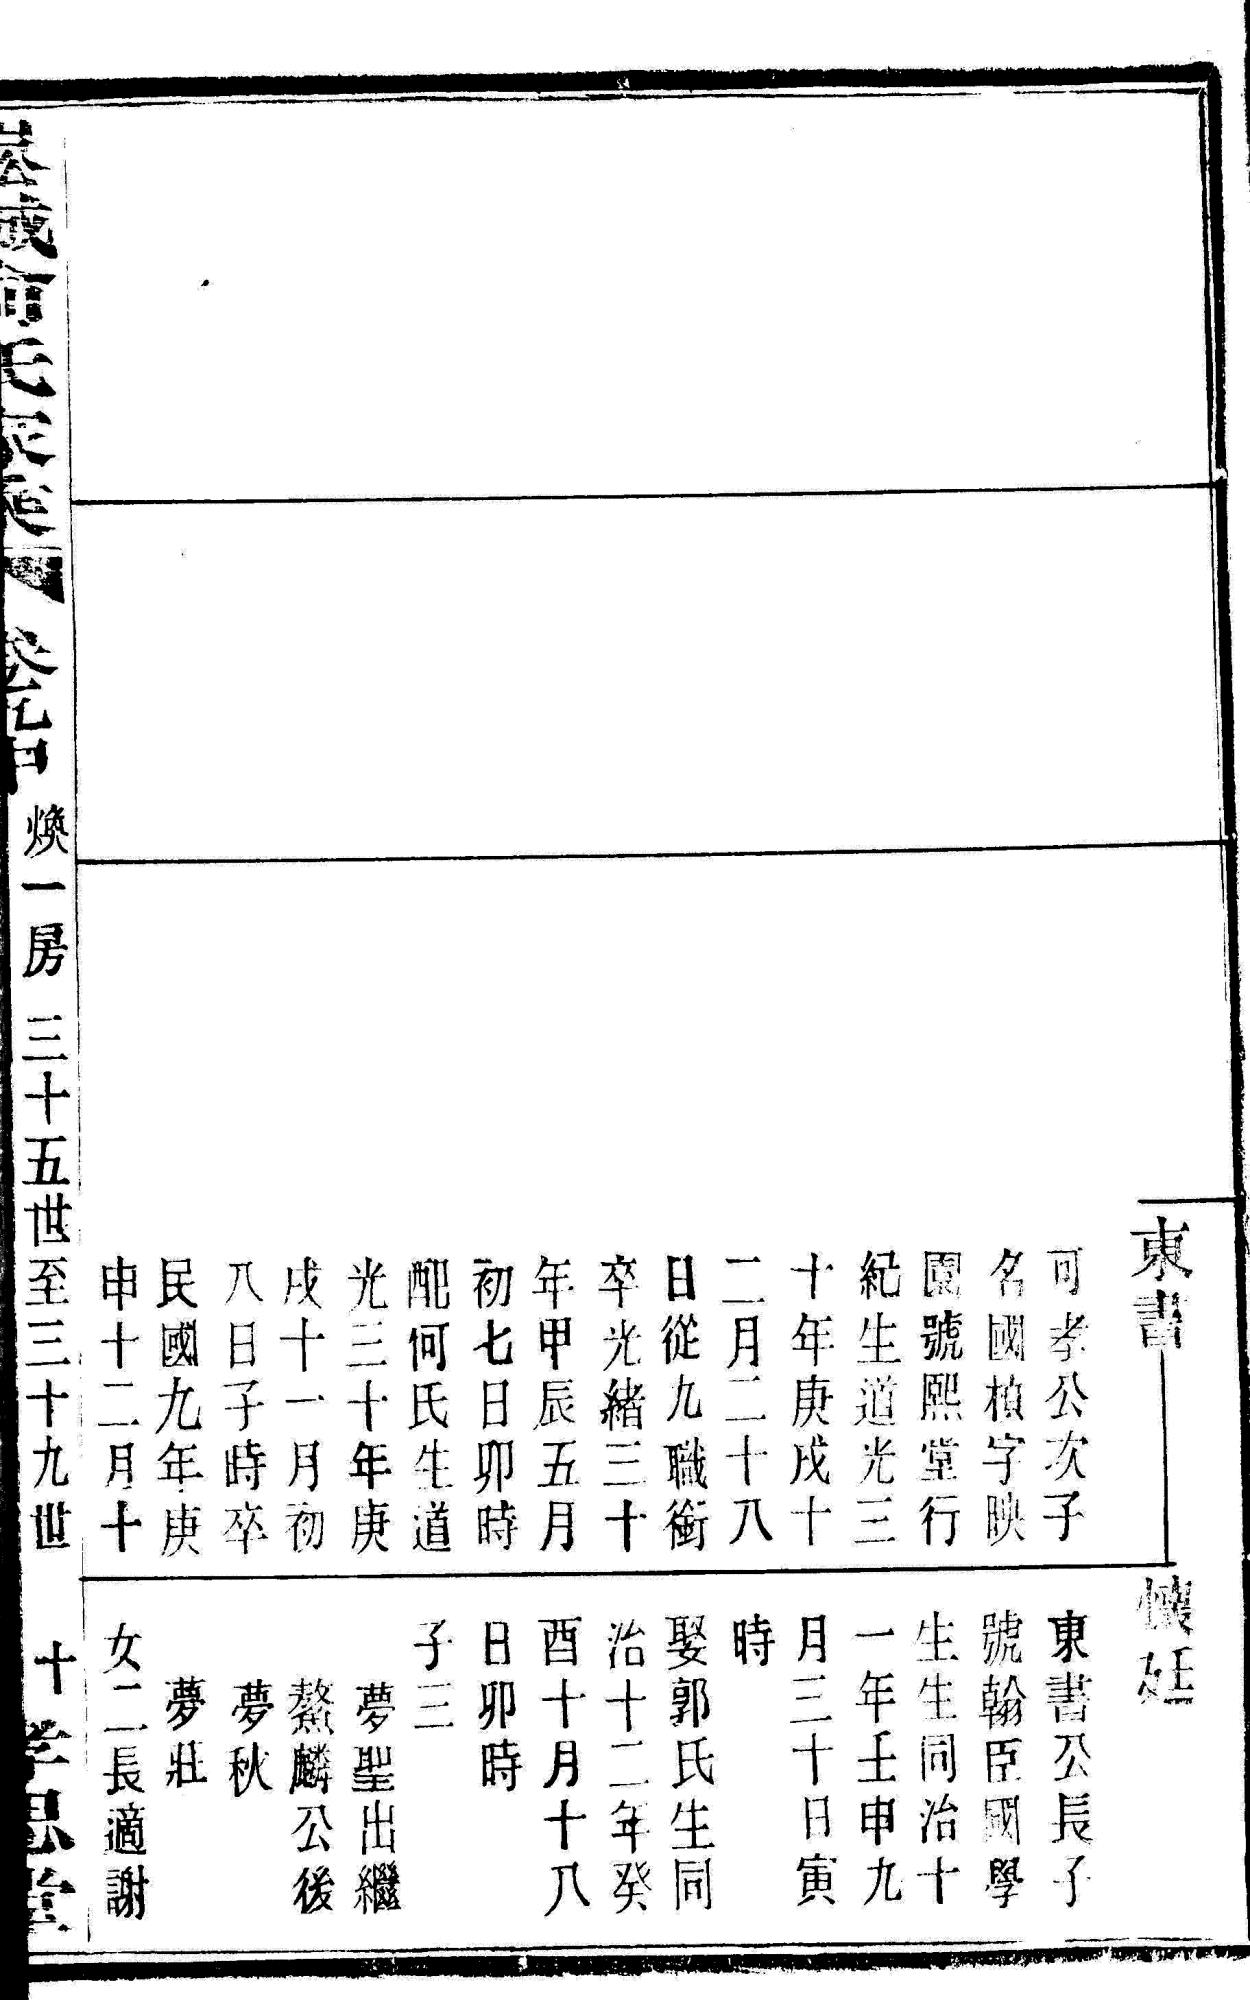 東書
可孝公次子
名國楨字映
園號熙堂行
紀生道光三
十年庚戌十
二月二十八
日從九職銜
卒光緒三十
年甲辰五月
初七日卯時
配何氏生道
光三十年庚
戌十一月初
八日子時卒
民國九年庚
申十二月十
懷廷
東書公長子
號翰臣國學
生生同治十
一年壬申九
月三十日寅
時
娶郭氏生同
治十二年癸
酉十月十八
日卯時
子三
夢聖出繼
鰲麟公後
夢秋
夢壯
女二長適謝
氏家乘
煥一房
三十五世至三十九世
十
孝思堂